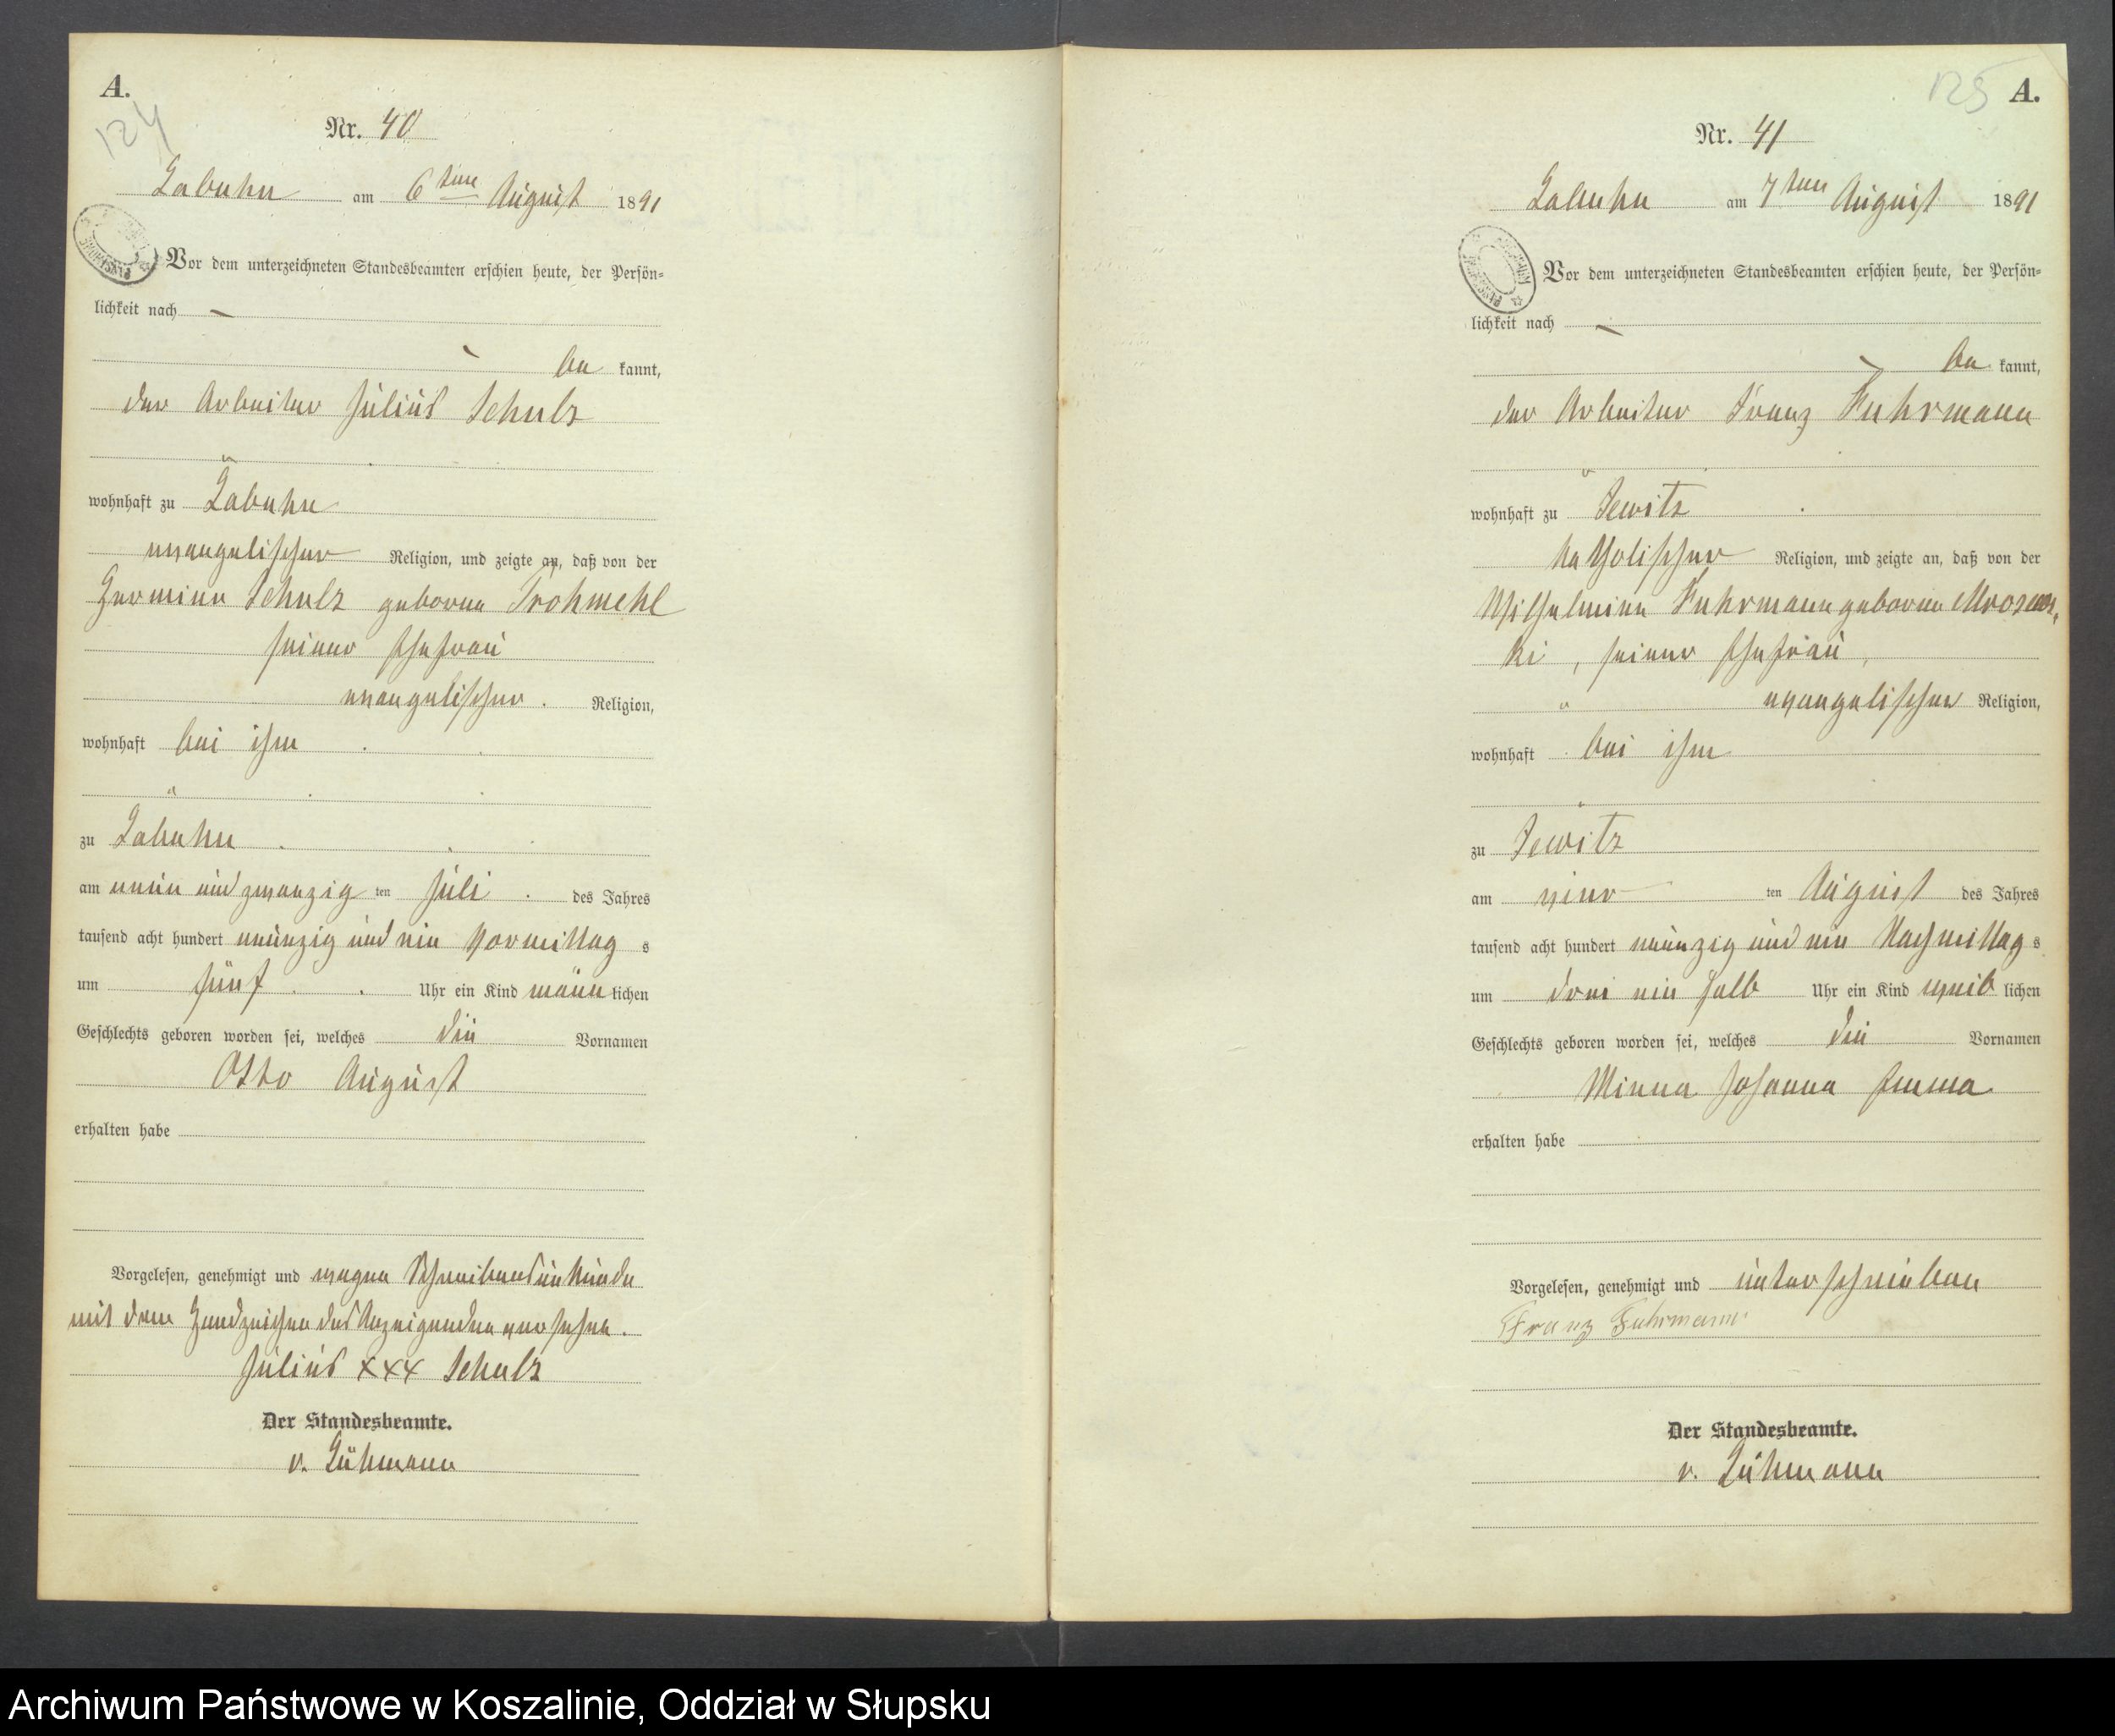 A.
124
Nr. 40
Labuhn am 6ten August 1891
Vor dem unterzeichneten Standesbeamten erschien heute, der Persön-
lichkeit nach —
be kannt,
der Arbeiter Julius Schulz
wohnhaft zu Labuhn
evangelischer Religion, und zeigte an, daß von der
Hermine Schulz geborne Trohmehl
seiner Ehefrau
evangelischer Religion,
wohnhaft bei ihm
zu Labuhn
am neun und zwanzig ten Juli des Jahres
tausend acht hundert neunzig und ein Vormittag s
um fünf Uhr ein Kind männ lichen
Geschlechts geboren worden sei, welches die Vornamen
Otto August
erhalten habe
Vorgelesen, genehmigt und wegen Schreibensunkunde
mit dem Handzeichen des Anzeigenden versehen.
Julius xxx Schulz
Der Standesbeamte.
v. Lühmann
125 A.
Nr. 41
Labuhn am 7ten August 1891
Vor dem unterzeichneten Standesbeamten erschien heute, der Persön-
lichkeit nach —
be kannt,
der Arbeiter Franz Fuhrmann
wohnhaft zu Jewitz
katholischer Religion, und zeigte an, daß von der
Wilhelmine Fuhrmann geborne
ki, seiner Ehefrau,
evangelischer Religion,
wohnhaft bei ihm
zu Jewitz
am vier ten August des Jahres
tausend acht hundert neunzig und ein Nachmittag s
um drei ein halb Uhr ein Kind weib lichen
Geschlechts geboren worden sei, welches die Vornamen
Minna Johanna Emma
erhalten habe
Vorgelesen, genehmigt und unterschrieben
Franz Fuhrmann
Der Standesbeamte.
v. Lühmann
Archiwum Państwowe w Koszalinie, Oddział w Słupsku